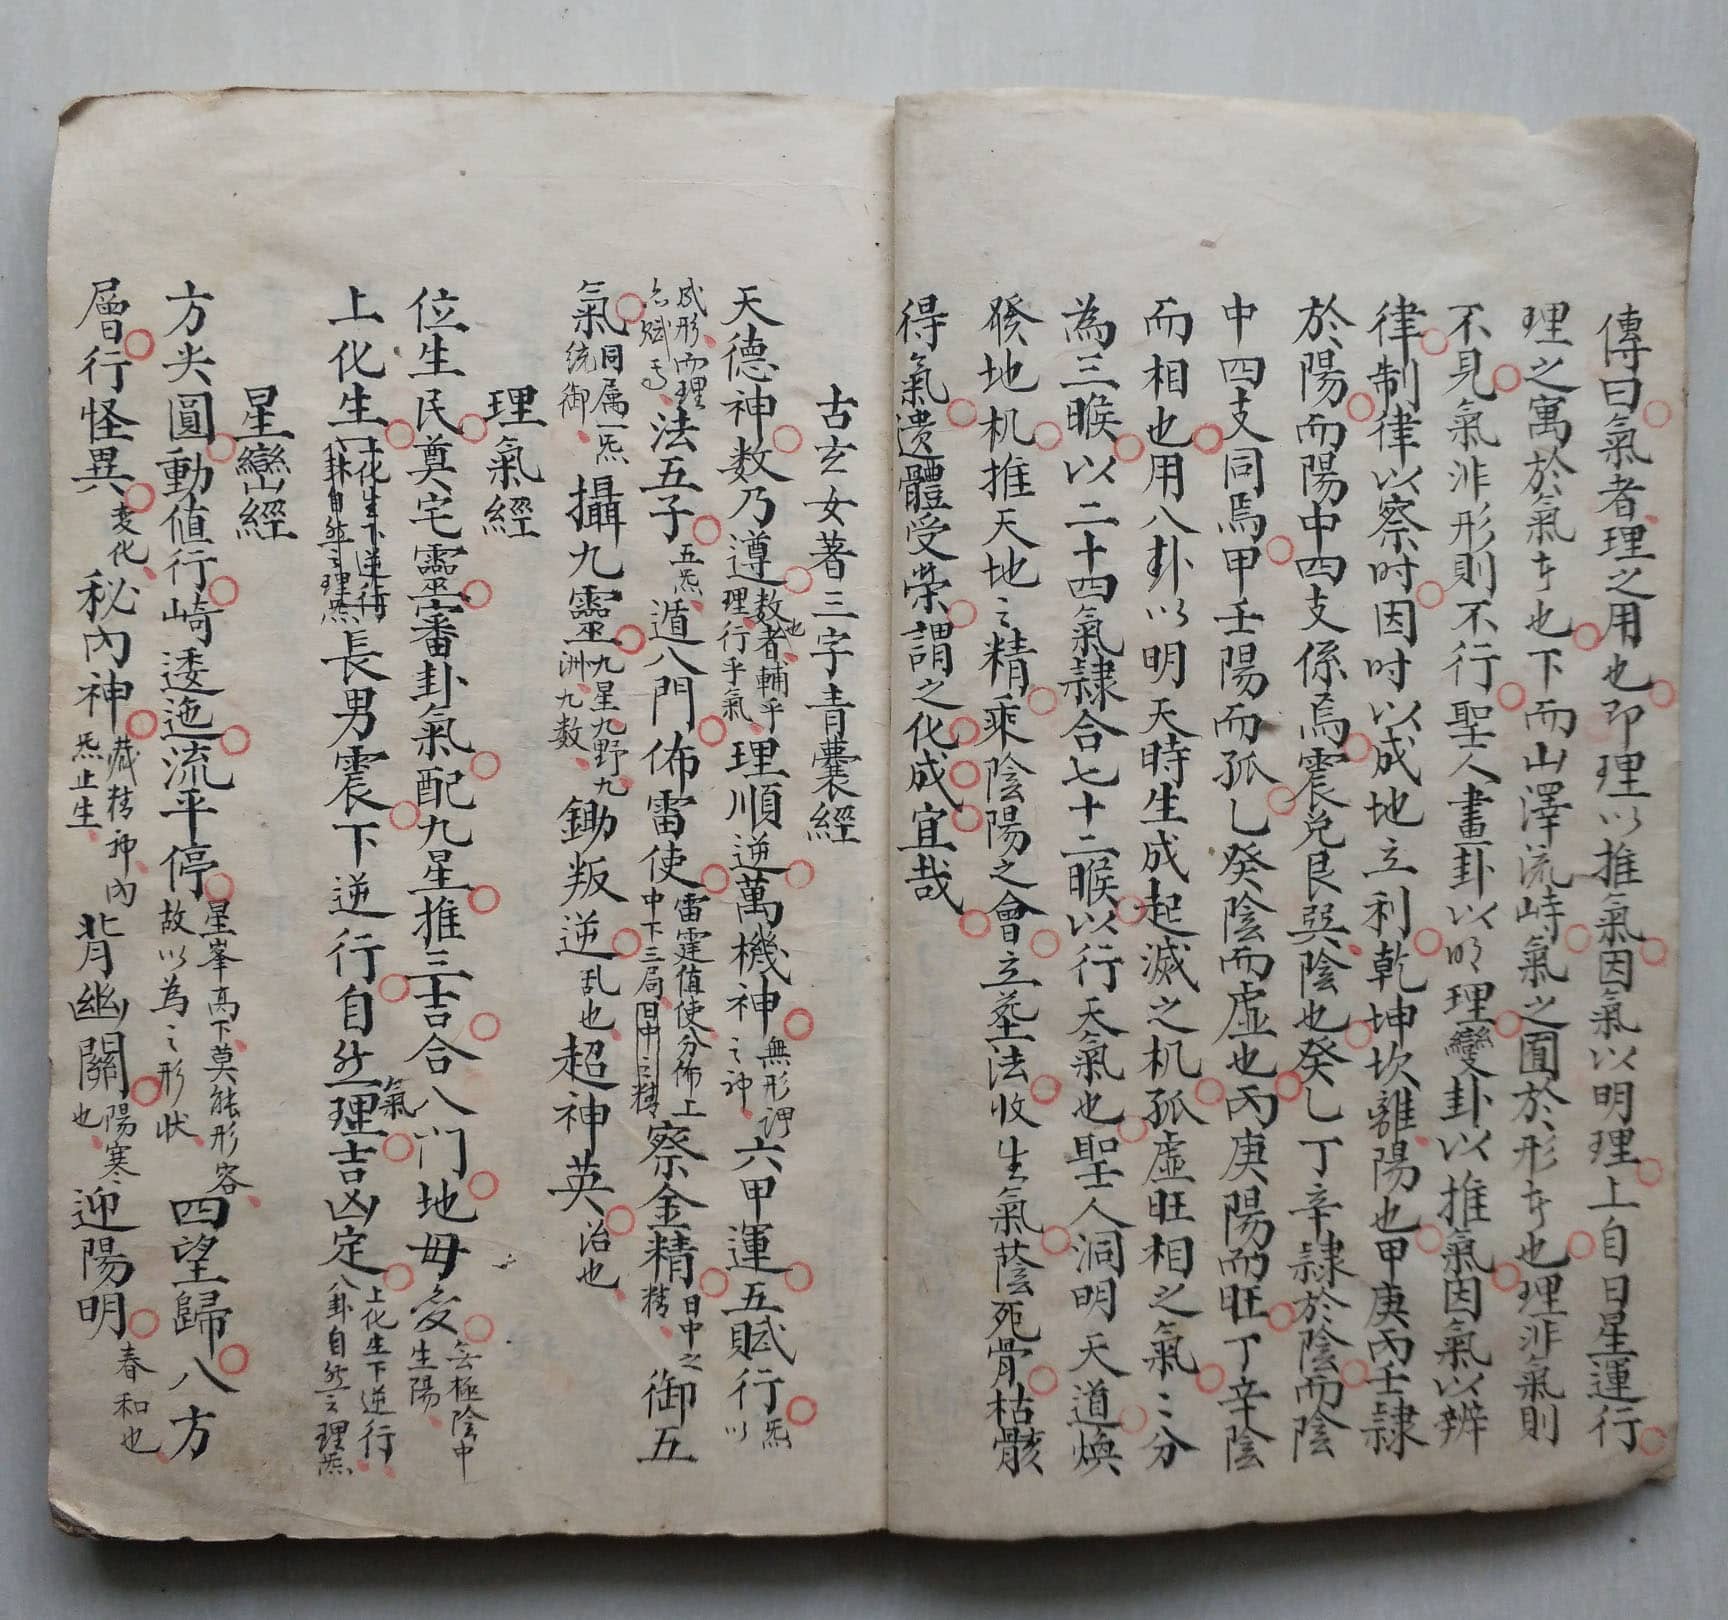 傳曰氣者理之用也即理以推氣因氣以明理上自日星運行
理之寓於氣者也下而山澤流峙氣之囿於形者也理非氣則
不見氣非形則不行聖人畫卦以明理變卦以推氣因氣以辨
律制律以察时因时以成地之利乾坤坎離陽也甲庚丙壬隸
於陽而陽中四支係焉震兌艮巽陰也癸乙丁辛隸於陰而陰
中四支同焉甲壬陽而孤乙癸陰而虛也丙庚陽而旺丁辛陰
而相也用八卦以明天時生成起滅之机孤虛旺相之氣〻分
為三睺以二十四氣隸合七十二睺以行天氣也聖人洞明天道煥
發地机推天地之精乘陰陽之會立葬法收生氣蔭死骨枯骸
得氣遺體受榮謂之化成宜哉
古玄女著三字青囊經
天德神数乃遵数者輔乎理行乎氣也理順逆萬機神無形謂之神六甲運五賦行炁以
成形而理亦賦焉法五子五炁遁八門佈雷使雷霆值使分佈上中下三局日中之精察金精日中之精御五
氣同属一炁统御攝九靈九星九野九洲九数鋤叛逆乱也超神英治也
理氣經
位生民奠宅靈審卦氣配九星推三吉合八门地毋爻無極陰中生陽
上化生上化生下逆行八卦自然之理炁長男震下逆行自然理氣吉凶定上化生下逆行八卦自然之理炁
星巒經
方尖圓動值行崎逶迤流平停星峯高下莫能形容故以為之形状四望歸八方
層行怪異变化秘內神藏精神內炁止生背幽關陽寒也迎陽明春和也